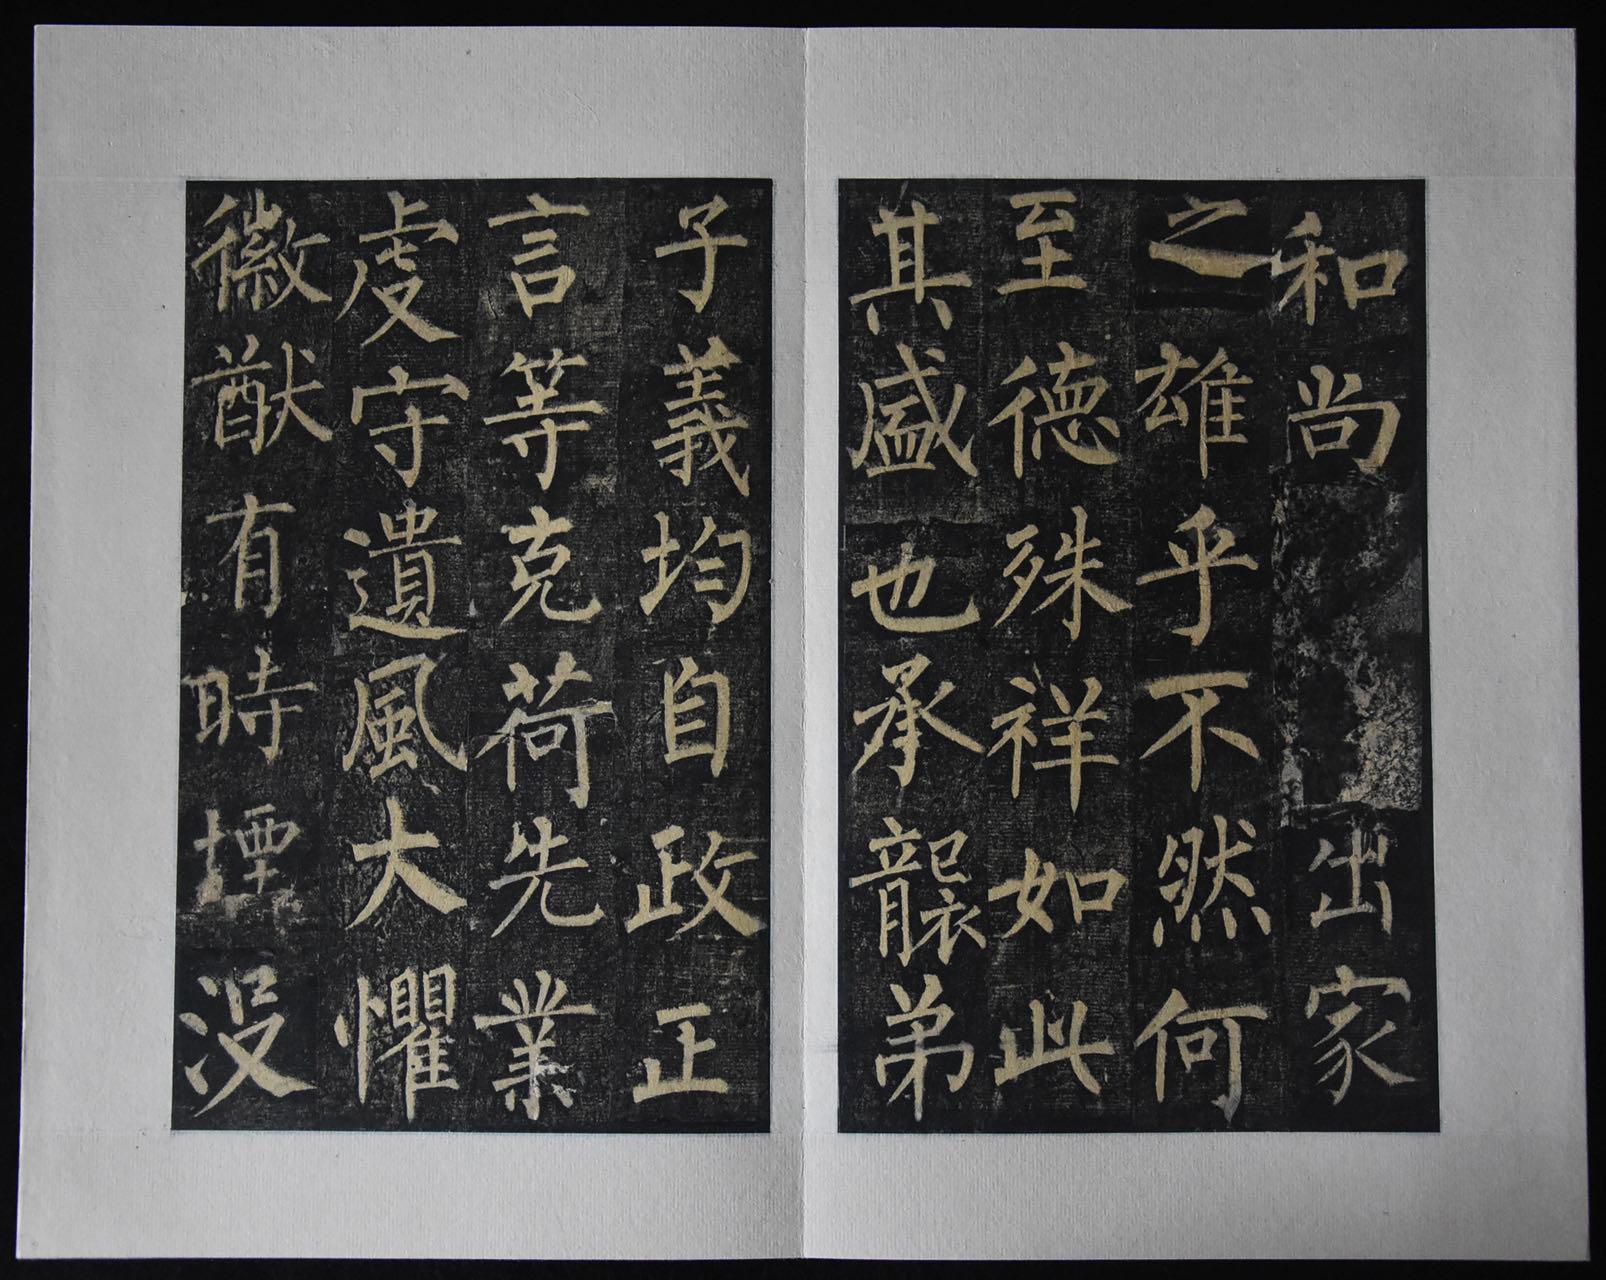 和尚出家
之雄乎不然何
至德殊祥如此
其盛也承襲弟
子義均自政正
言等克荷先業
虔守遺風大懼
徽猷有時堙沒